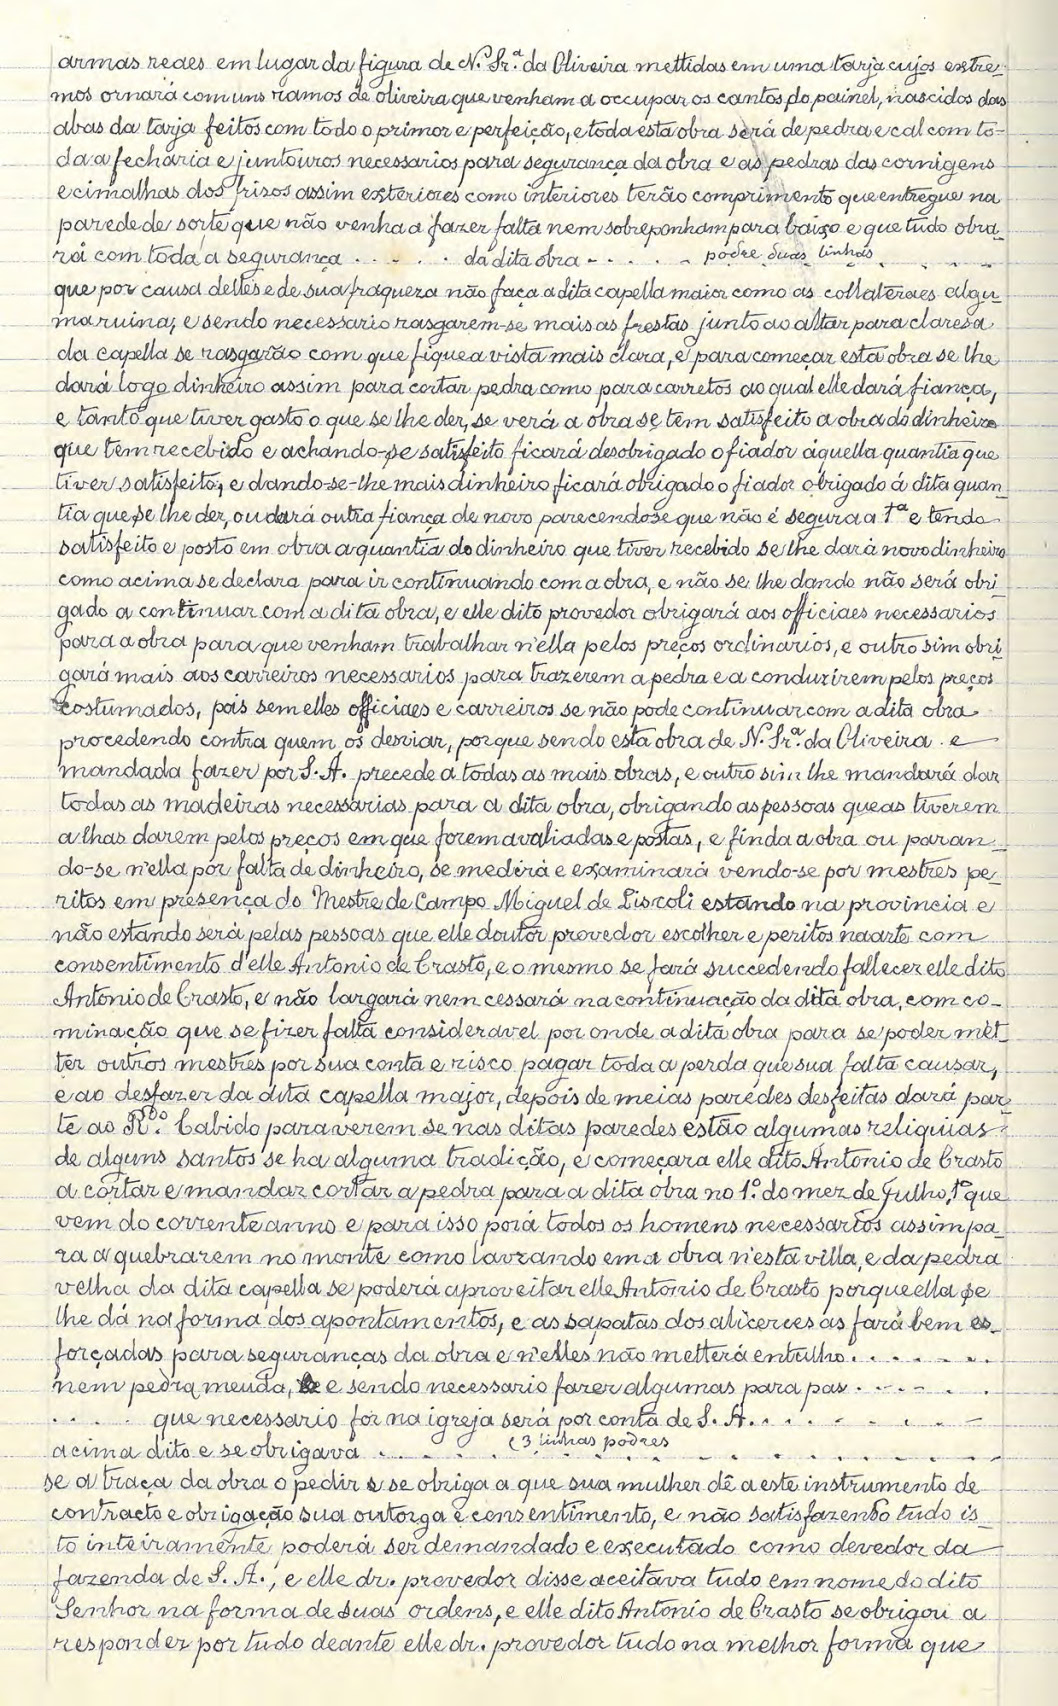 armas reaes em lugar da figura de N. Sr.ª da Oliveira mettidas em uma tarja cujos extre-
mos ornará com uns ramos de oliveira que venham a occupar os cantos do painel, nascidos das
abas da tarja feitos com todo o primor e perfeição, e toda esta obra será de pedra e cal com to-
da a fecharia e juntouros necessarios para segurança da obra e as pedras das cornigens
e cimalhas dos frizos assim exteriores como interiores terão comprimento que entregue na
parede de sorte que não venha a fazer falta nem sobreponham para baixo e que tudo obra-
rá com toda a segurança . . . . . da dita obra - . . . . podre duas linhas . . . .
que por causa delles e de sua fraqueza não faça a dita capella maior como as collateraes algu-
ma ruina, e sendo necessario rasgarem-se mais as frestas junto ao altar para claresa
da capella se rasgarão com que fique a vista mais clara, e para começar esta obra se lhe
dará logo dinheiro assim para cortar pedra como para carretos ao qual elle dará fiança,
e tanto que tiver gasto o que se lhe der, se verá a obra se tem satisfeito a obra do dinheiro
que tem recebido e achando-se satisfeito ficará desobrigado o fiador áquella quantia que
tiver satisfeito, e dando-se-lhe mais dinheiro ficará obrigado o fiador obrigado á dita quan-
tia que se lhe der, ou dará outra fiança de novo parecendo-se que não é segura a 1ª e tendo
satisfeito e posto em obra a quantia do dinheiro que tiver recebido se lhe dará novo dinheiro
como acima se declara para ir continuando com a obra, e não se lhe dando não será obri-
gado a continuar com a dita obra, e elle dito provedor obrigará aos officiaes necessarios
para a obra para que venham trabalhar n'ella pelos preços ordinarios, e outro sim obri-
gará mais aos carreiros necessarios para trazerem a pedra e a conduzirem pelos preços
costumados, pois sem elles officiaes e carreiros se não pode continuar com a dita obra
procedendo contra quem os desviar, porque sendo esta obra de N. Sr.ª da Oliveira e
mandada fazer por S. A. precede a todas as mais obras, e outro sim lhe mandará dar
todas as madeiras necessarias para a dita obra, obrigando as pessoas que as tiverem
a lhas darem pelos preços em que forem avaliadas e postas, e finda a obra ou paran-
do-se n'ella por falta de dinheiro, se medirá e examinará vendo-se por mestres pe-
ritos em presença do Mestre de Campo Miguel de Liscoli estando na provincia e
não estando será pelas pessoas que elle doutor provedor escolher e peritos na arte com
consentimento d'elle Antonio de Crasto, e o mesmo se fará succedendo fallecer elle dito
Antonio de Crasto, e não largará nem cessará na continuação da dita obra, com co-
minação que se fizer falta consideravel por onde a dita obra para se poder met-
ter outros mestres por sua conta e risco pagar toda a perda que sua falta causar,
e ao desfazer da dita capella major, depois de meias paredes desfeitas dará par-
te ao R.do Cabido para verem se nas ditas paredes estão algumas reliquias
de alguns santos se ha alguma tradição, e começara elle dito Antonio de Crasto
a cortar e mandar cortar a pedra para a dita obra no 1.º do mez de Julho, 1º que
vem do corrente anno e para isso porá todos os homens necessarios assim pa-
ra a quebrarem no monte como lavrando em a obra n'esta villa, e da pedra
velha da dita capella se poderá aproveitar elle Antonio de Crasto porque ella se
lhe dá na forma dos apontamentos, e as sapatas dos alicerces as fará bem es-
forçadas para seguranças da obra e n'elles não metterá entulho . . . . . . .
nem pedra meuda, e sendo necessario fazer algumas para pas . . . . . .
. . . . que necessario for na igreja será por conta de S. A. . . . . . . .
acima dito e se obrigava . . . . . (3 linhas podres . . . . . . .
se a traça da obra o pedir e se obriga a que sua mulher dê a este instrumento de
contracto e obrigação sua outorga e consentimento, e não satisfazendo tudo is-
to inteiramente poderá ser demandado e executado como devedor da
fazenda de S. A., e elle dr. provedor disse aceitava tudo em nome do dito
Senhor na forma de suas ordens, e elle dito Antonio de Crasto se obrigou a
responder por tudo deante elle dr. provedor tudo na melhor forma que